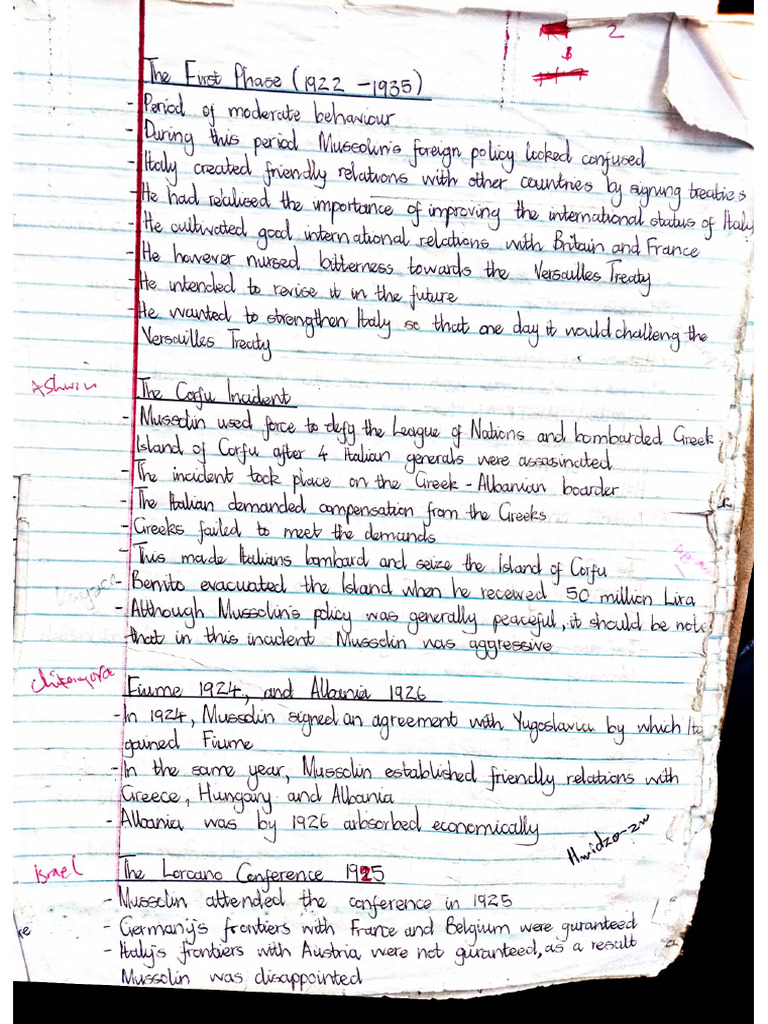 2
The First Phase (1922 - 1935)
- Period of moderate behaviour
- During this period Mussolin's foreign policy looked confused
- Italy created friendly relations with other countries by signing treaties
- He had realised the importance of improving the international status of Italy
- He cultivated good international relations with Britain and France
- He however nursed bitterness towards the Versailles Treaty
- He intended to revise it in the future
- He wanted to strengthen Italy so that one day it would challeng the
Versailles Treaty
Ashwin
The Corfu Incident
- Mussolin used force to defy the League of Nations and bombarded Greek
Island of Corfu after 4 Italian generals were assasinated
- The incident took place on the Greek - Albanian boarder
- The Italian demanded compensation from the Greeks
- Greeks failed to meet the demands
- This made Italians bombard and seize the Island of Corfu
- Benito evacuated the Island when he received 50 million Lira
- Although Mussolin's policy was generally peaceful, it should be note
that in this incident Mussolin was aggressive
Fiume 1924, and Albania 1926
- In 1924, Mussolin signed an agreement with Yugoslavia by which Ita
gained Fiume
- In the same year, Mussolin established friendly relations with
Greece, Hungary and Albania
- Albania was by 1926 arbsorbed economically
Israel
The Lorcano Conference 1925
- Mussolin attended the conference in 1925
- Germany's frontiers with France and Belgium were guranteed
- Italy's frontiers with Austria were not guranteed, as a result
Mussolin was disappointed